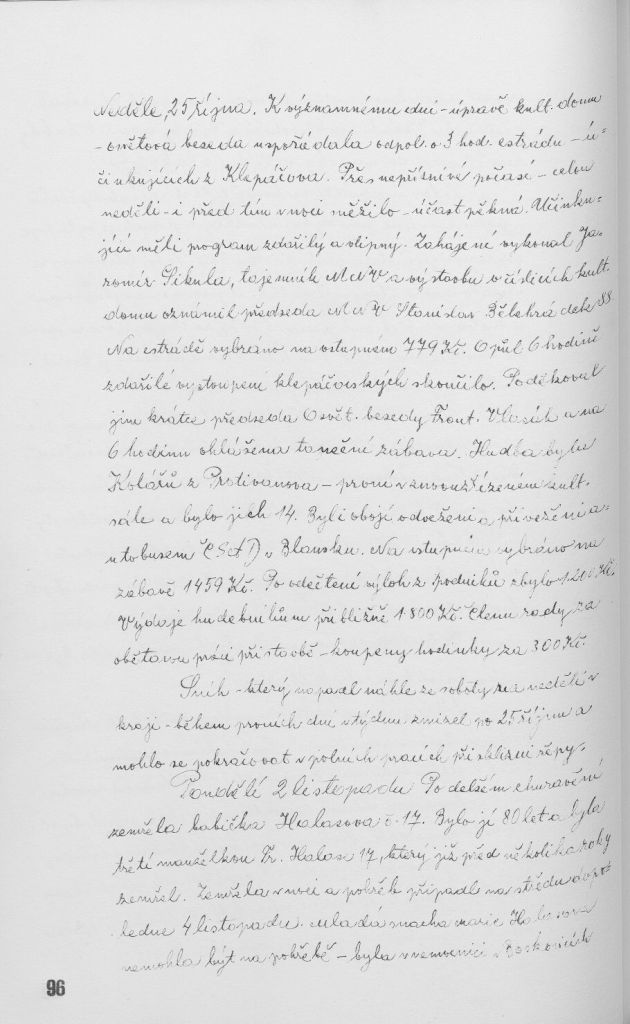 Neděle, 25 října. K významnému dni - úpravě kult. domu
- osvětová beseda uspořádala odpol. o 3 hod. estrádu - ú-
činkujících z Klepáčova. Přes nepříznivé počasí - celou
neděli - i před tím v noci sněžilo - účast pěkná. Účinku-
jící měli program zdařilý a vtipný. Zahájení vykonal Ja-
romír Sikula, tajemník MNV a výstavbu v číslicích kult.
domu oznámil předseda MNV Stanislav Bělehrádek 88
Na estrádě vybráno na vstupném 779 Kč. O půl 6 hodině
zdařilé vystoupení klepáčovských skončilo. Poděkoval
jim krátce předseda Osvět. besedy Front. Vlasák a na
6 hodinu ohlášena taneční zábava. Hudba byla
Kolářů z Protivanova - první v znovuzřízeném kult.
sále a bylo jich 14. Byli obojí odvezeni a přivezeni a-
utobusem ČSAD v Blansku. Na vstupném vybráno na
zábavě 1459 Kč. Po odečtení výloh z podniků zbylo 1200 Kč.
Výdaje hudebníkům přibližně 1800 Kč. Členu rady za
obětavou práci při stavbě - koupeny hodinky za 300 Kč.
Sníh - který napadl náhle ze soboty na neděli v
kraji - během prvních dní v týdnu zmizel po 25 říjnu a
mohlo se pokračovat v polních pracích při sklizni řepy.
Pondělí 2 listopadu Po delším churavění
zemřela babička Halasova č. 17. Bylo jí 80 let a byla
třetí manželkou Fr. Halase 17, který již před několika roky
zemřel. Zemřela v noci a pohřeb připadl na středu dopo-
ledne 4 listopadu. Mladá snacha Marie Halasova
nemohla být na pohřbě - byla v nemocnici v Boskovicích
96